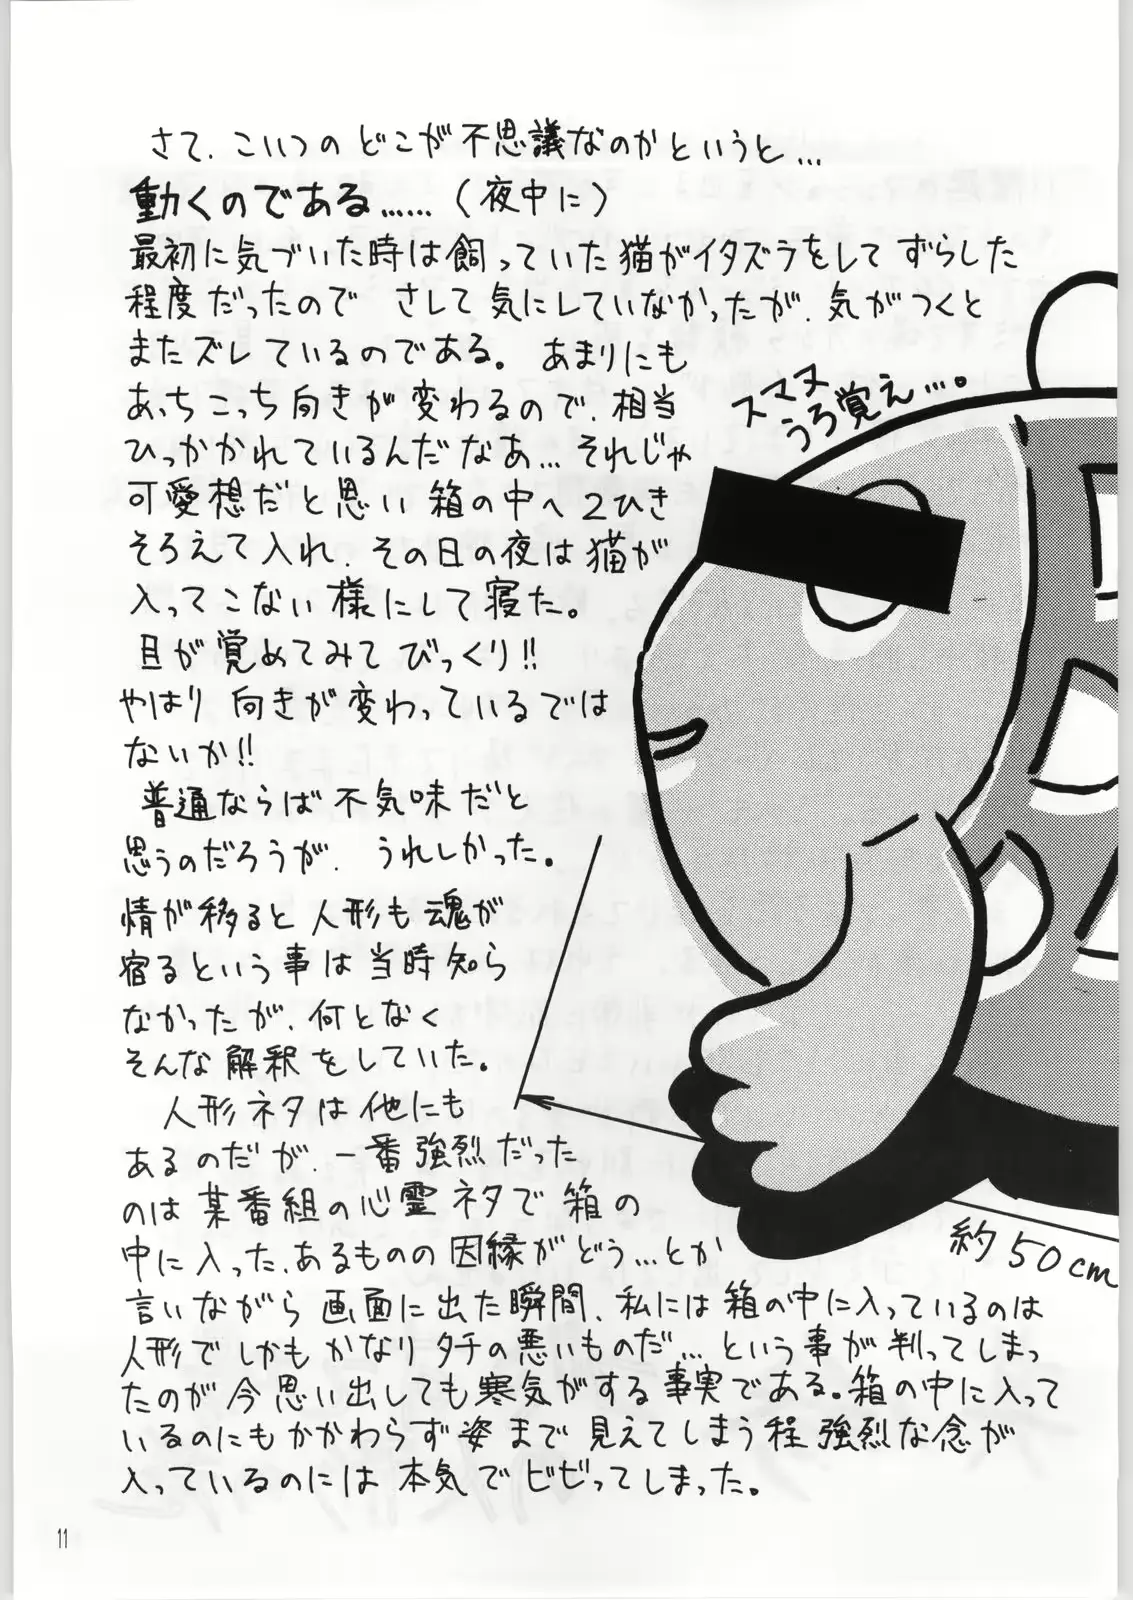 さて、こいつのどこが不思議なのかというと…
動くのである……（夜中に）
最初に気づいた時は飼っていた猫がイタズラをしてずらした
程度だったので さして気にしていなかったが、気がつくと
またズレているのである。 あまりにも
あっちこっち向きが変わるので、相当
ひっかかれているんだなあ… それじゃ
可愛想だと思い 箱の中へ2ひき
そろえて入れ、その日の夜は猫が
入ってこない様にして寝た。
目が覚めてみてびっくり!!
やはり 向きが変わっているでは
ないか!!
普通ならば不気味だと
思うのだろうが、 うれしかった。
情が移ると人形も魂が
宿るという事は当時知ら
なかったが、何となく
そんな解釈をしていた。
人形ネタは他にも
あるのだが、一番強烈だった
のは某番組の心霊ネタで箱の
中に入った、あるものの因縁がどう…とか
言いながら画面に出た瞬間、私には箱の中に入っているのは
人形でしかもかなりタチの悪いものだ… という事が判ってしまっ
たのが今思い出しても寒気がする事実である。箱の中に入って
いるのにもかかわらず姿まで見えてしまう程強烈な念が
入っているのには本気でビビってしまった。
スマヌ
うろ覚え…。
約50cm
11